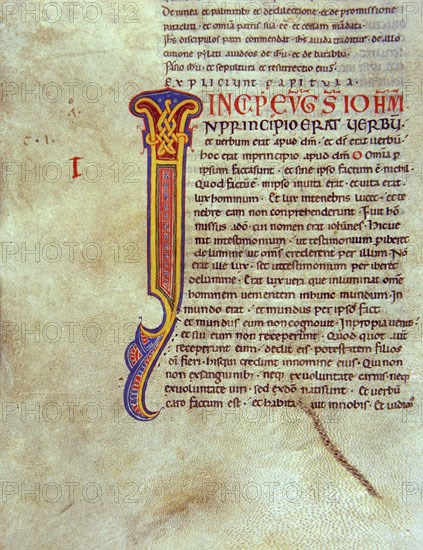 De unea et palmitib; et de dilectione et de promissione
paracliti et omnia patris sua ee et ceteri mandati.
Ihs discipulos patri commendat. ihs iuda traditur. de illo
cutione pylati iudeos de ihu et de baraba
Passio ihu et sepultura et resurrectio eius.
Expliciunt capitula.
INCP EVG S IOHM
c. 1.
N PRINCIPIO ERAT VERBU.
et verbum erat apud dm. et ds erat verbu
hoc erat inprincipio apud dm Omia p
I
ipsum facta sunt. et sine ipso factum e nichil.
Quod factu e inipso uita erat. et uita erat
lux hominum. Et lux intenebris lucet. et te
nebre eam non comprehenderunt. Fuit ho
missus a do. cui nomen erat iohanes. Hic ue
nit intestimonium. ut testimonium phiberet
de lumine. ut oms crederent per illum. No
erat ille lux. sed ut testimonium perhiberet
delumine. Erat lux vera que inluminat omne
hominem uenientem inhunc mundum. In
mundo erat. et mundus per ipsu fact
et mundus eum non cognouit. Inpropia uenit.
et sui eum non receperunt. Quodquot aut
receperunt eum. dedit eis potestatem filios
di fieri. hisqui credunt innomine eius. Qui non
non exsanguinib; neq; exuoluntate carnis. neq;
exuoluntate uiri. sed exdo nati sunt. Et verbu
caro factum est. et habitauit innobis. Et uidim